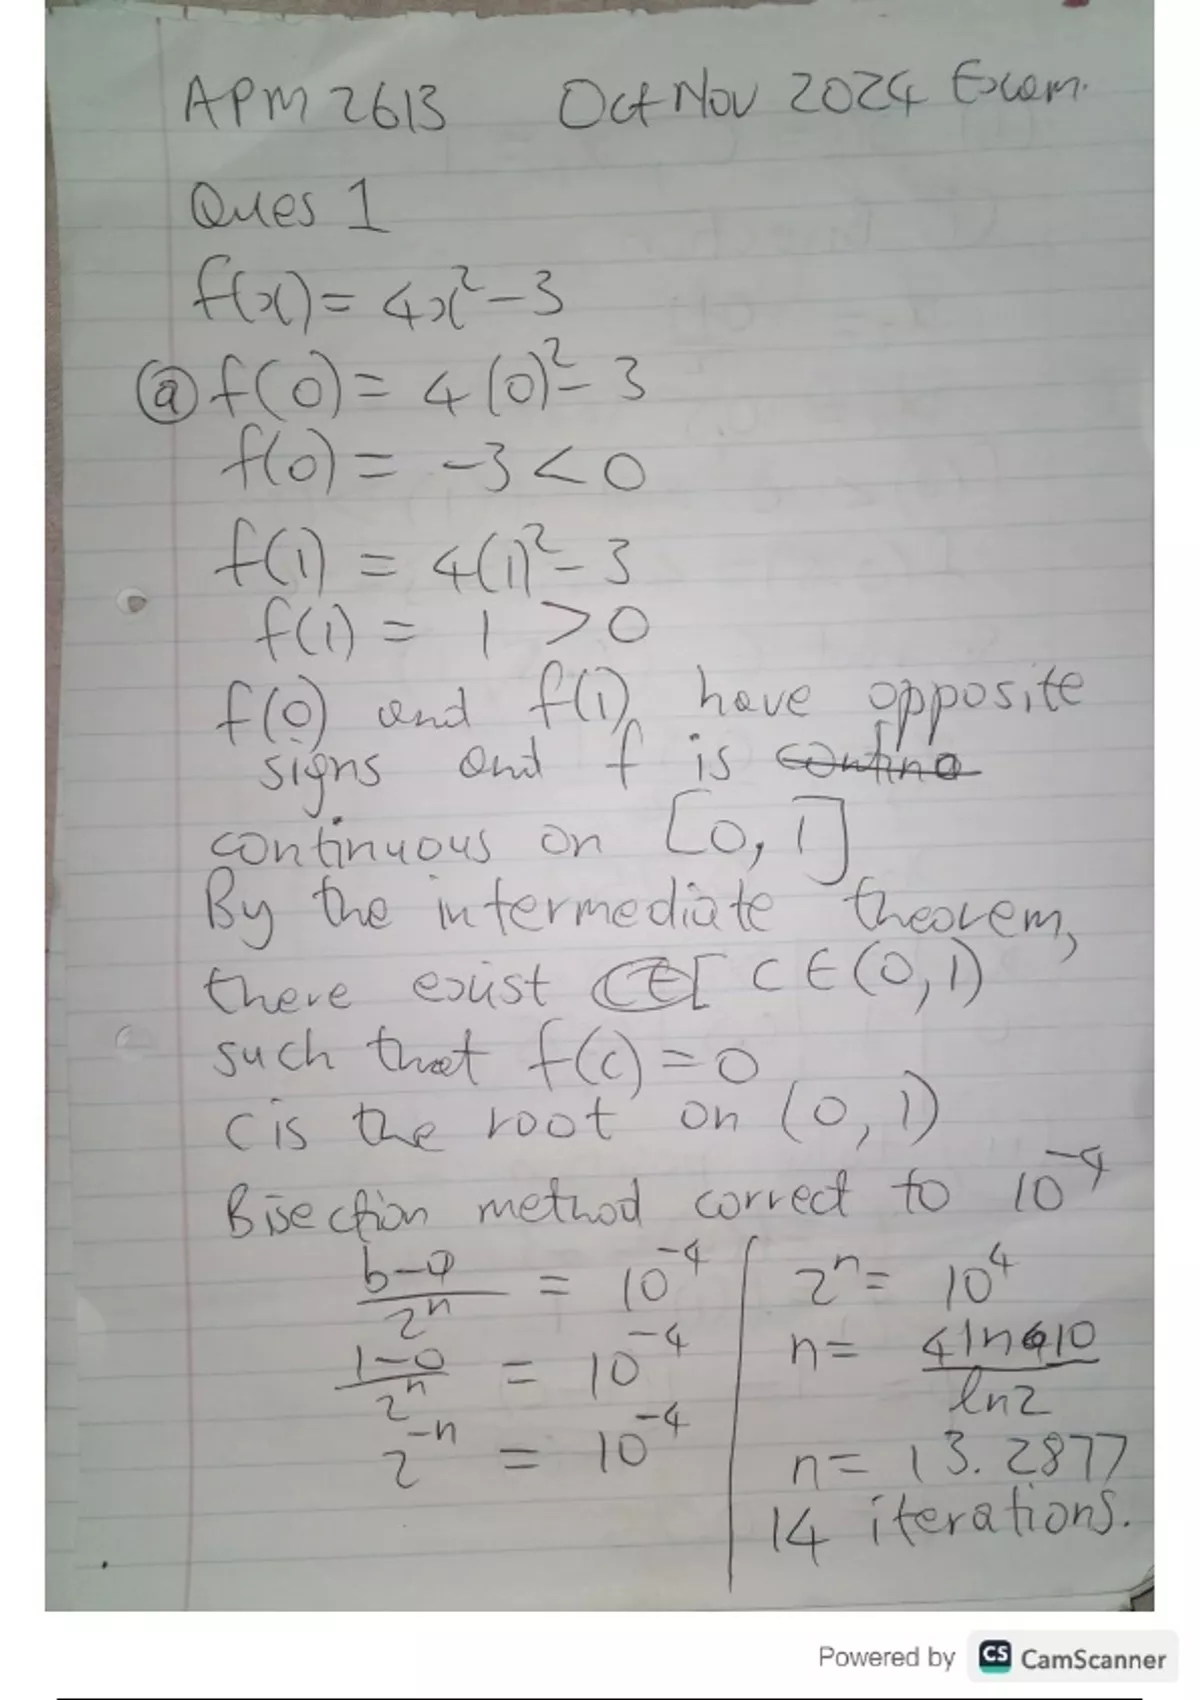 APM 2613 Oct Nov 2024 Exam.
Ques 1
f(x) = 4x² - 3
(a) f(0) = 4(0)² - 3
f(0) = -3 < 0
f(1) = 4(1)² - 3
f(1) = 1 > 0
f(0) and f(1), have opposite
signs and f is contino
continuous on [0, 1]
By the intermediate theorem,
there exist CE[ C ∈ (0, 1)
such that f(c) = 0
c is the root on (0, 1)
Bisection method correct to 10⁻⁴
b-a/2ⁿ = 10⁻⁴
1-0/2ⁿ = 10⁻⁴
2⁻ⁿ = 10⁻⁴
2ⁿ = 10⁴
n = 4ln10/ln2
n = 13.2877
14 iterations.
Powered by CS CamScanner